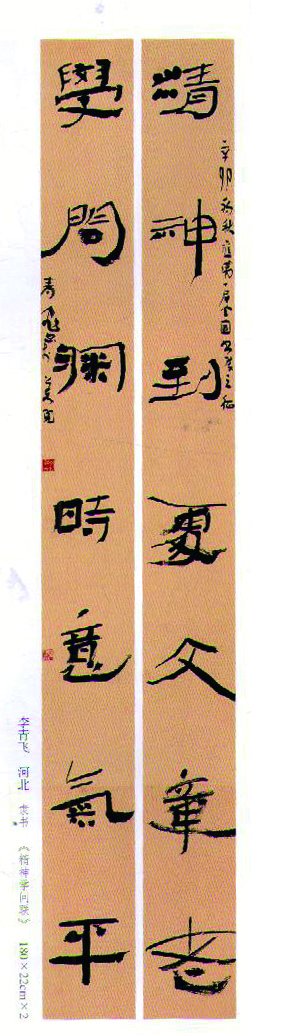 精神到處文章老
辛卯
學問深時意氣平
青飛
李青飞 河北 隶书 《精神学问联》 180×22cm×2